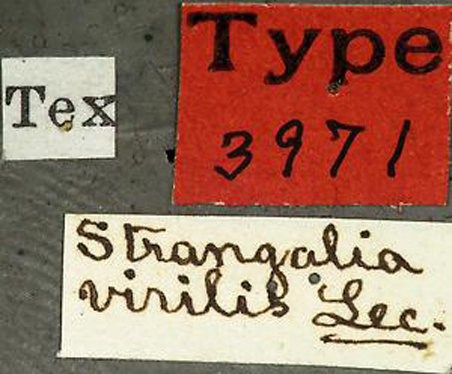 Tex
Type
3971
Strangalia
virilis Lec.